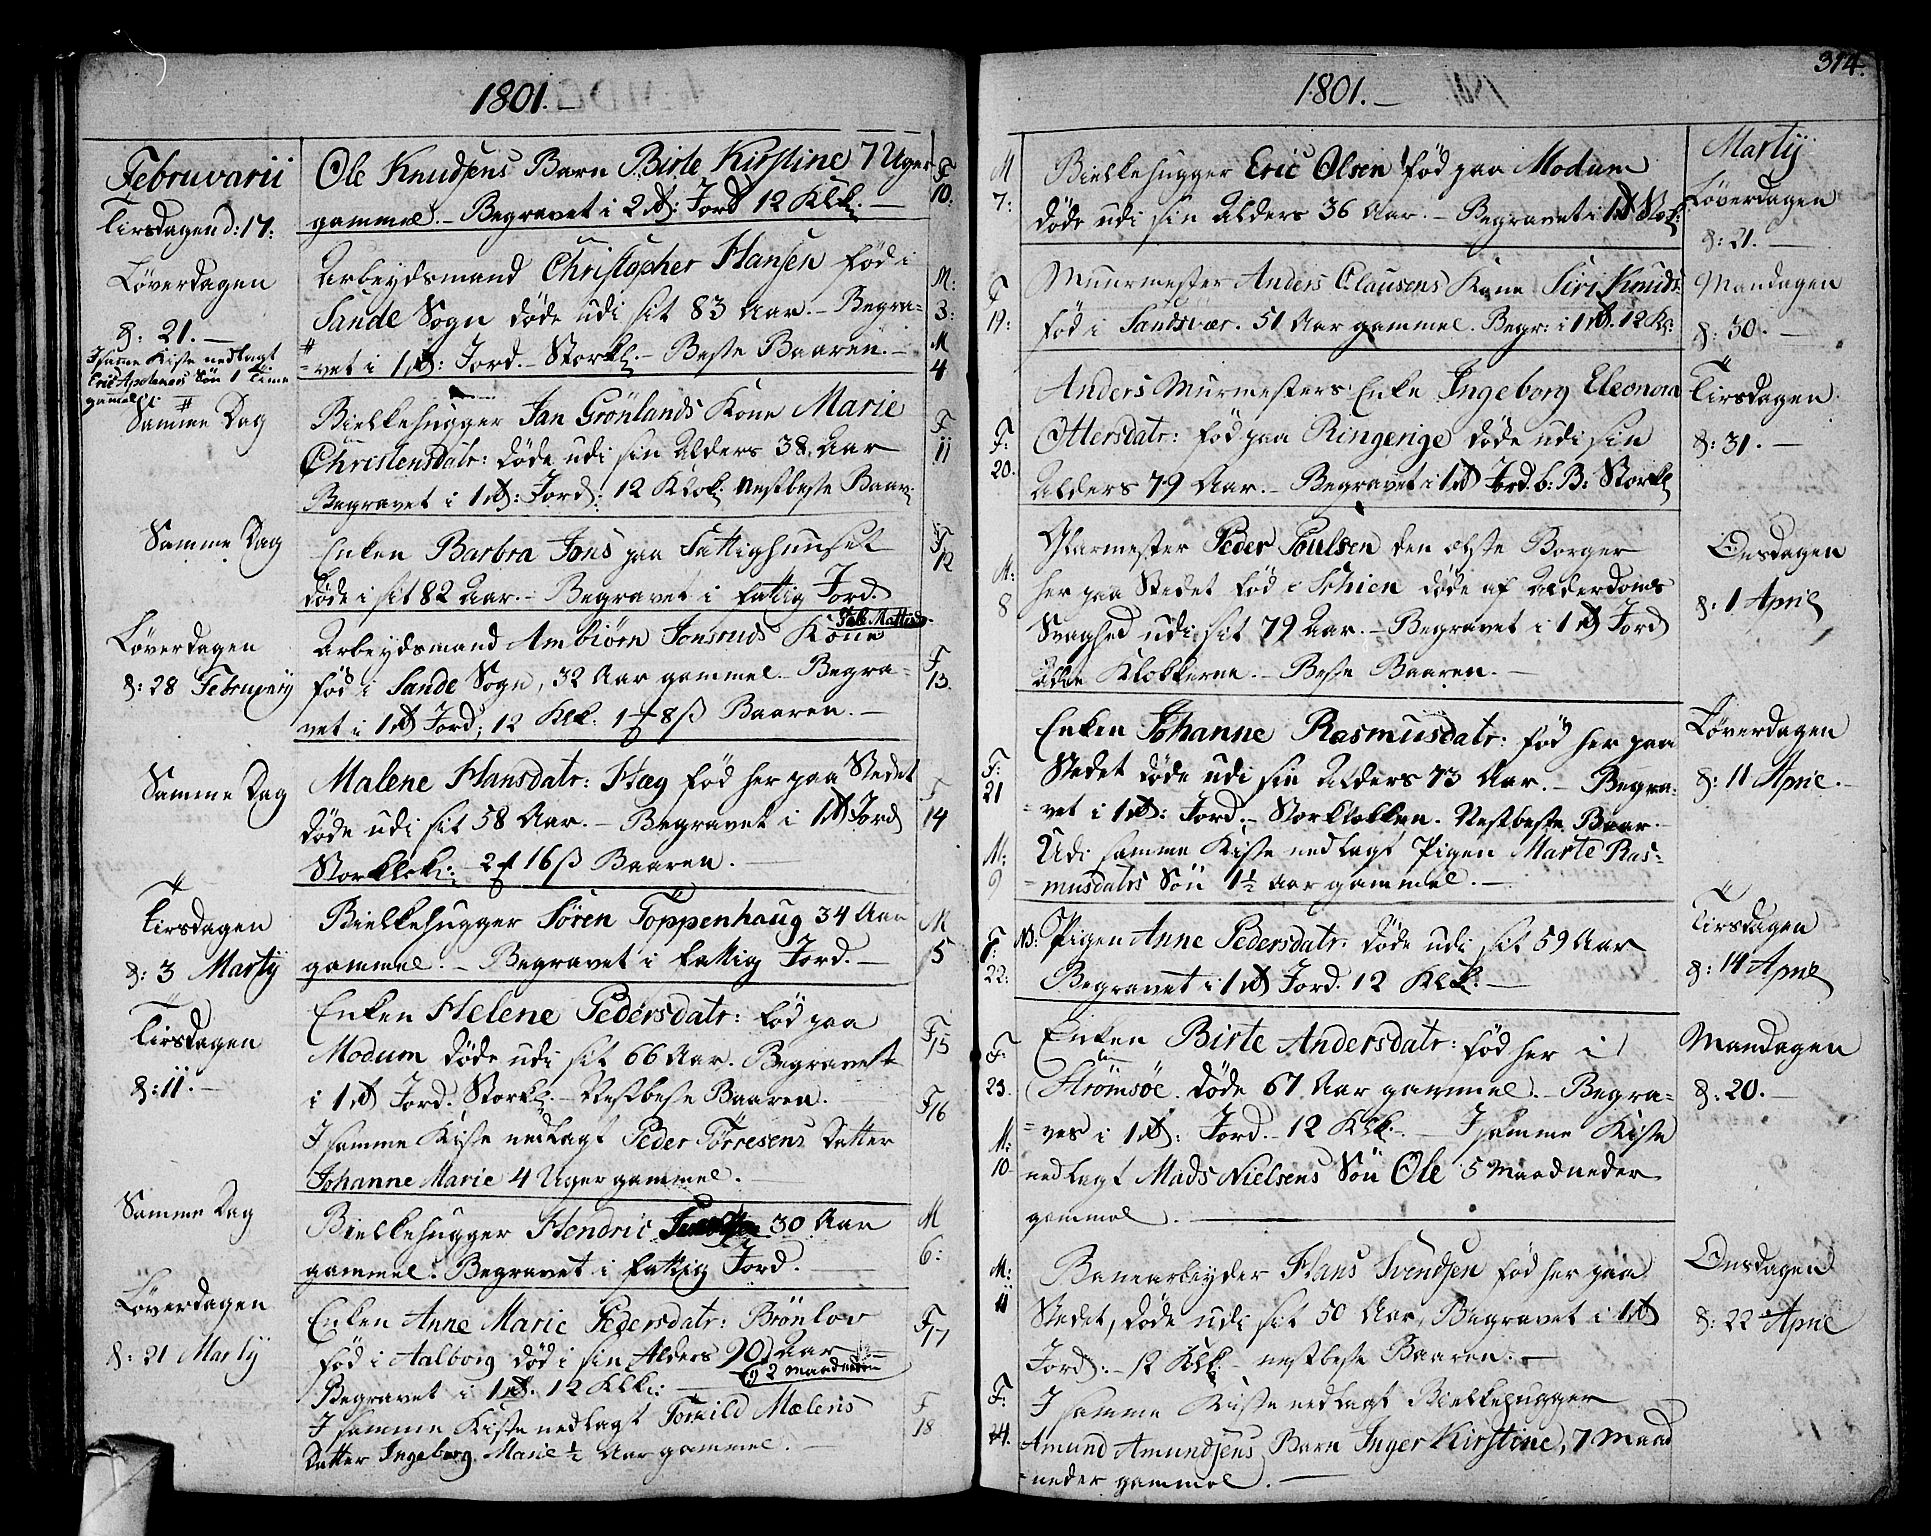 1801.
Februvarii
Tirsdagen d: 17:
Ole Knudsens Barn Birte Kirstine 7 Uger
gammel. - Begravet i 2 rd: Jord 12 Klk: -
F
10:
Løverdagen
d: 21. -
I samme Kiste nedlagt
Eric Apolenæs Søn 1 Time
gammel. #
Arbeydsmand Christopher Hansen fød i
Sande Sogn døde udi sit 83 Aar. - Begra-
# vet i 1 rd: Jord. - Storkl. - Beste Baaren. -
M:
3:
M
4
Samme Dag
Bielkehugger Jan Grönlands Kone Marie
Christensdatr: døde udi sin Alders 38. Aar
Begravet i 1 rd: Jord: 12 Klok: Nestbeste Baar:
F
11
Samme Dag
Enken Barbra Jons paa Fattighuuset
døde i sit 82 Aar. - Begravet i fattig Jord.
F
12
Løverdagen
d: 28 Februarij
Arbeydsmand Ambiörn Jonsruds Kone
fød i Sande Sogn, 32 Aar gammel. Begra-
vet i 1 rd Jord; 12 Klk: 1 8 ß Baaren. -
F
13.
Samme Dag
Malene Hansdatr: Hæg fød her paa Stedet
døde udi sit 58 Aar. - Begravet i 1 rd Jord
Storklok: 2 16 ß Baaren. -
F
14
Tirsdagen
d: 3 Martij
Bielkehugger Sören Toppenhaug 34 Aar
gammel. - Begravet i fattig Jord. -
M
5
Tirsdagen
d: 11. -
Enken Helene Pedersdatr: fød paa
Modum døde udi sit 66 Aar. Begravet
i 1 rd Jord. Storkl. - Nestbeste Baaren.
I samme Kiste nedlagt Peder Törresens Datter
Johanne Marie 4 Uger gammel. -
F
15
F
16
Samme Dag
Bielkehugger Hendric 30 Aar
gammel. Begravet i fattig Jord. -
M
6:
Løverdagen
d: 21 Martij
Enken Anne Marie Pedersdatr: Brönlov
fød i Aalborg død i sin Alders 90 Aar
og 2 Maaneder
Begravet i 1 rd. 12 Klk: -
I samme Kiste nedlagt Tomild Mælens
Datter Ingeborg Marie ½ Aar gammel. -
F
17
F
18
1801. -
314.
M
7:
Bielkehugger Eric Olsen fød paa Modum
døde udi sin Alders 36 Aar. - Begravet i 1 rd Stok:
Martij
Løverdagen
d: 21. -
F
19:
Muurmester Anders Clausens Kone Siri Knuds:
fød i Sandsvær. 51 Aar gammel. Begr: i 1 rd. 12 Kl:
Mandagen
d: 30. -
F:
20.
Anders Murmesters Enke Ingeborg Eleonora
Ottersdatr: fød paa Ringerige døde udi sin
Alders 79 Aar. - Begravet i 1 rd Jord. b: B: Storkl
Tirsdagen
d: 31. -
M:
8
Glarmester Peder Poulsen den elste Borger
her paa Stedet fød i Schien døde af Alderdoms
Svaghed udi sit 79 Aar. - Begravet i 1 rd Jord
Alle Klokkerne. - Beste Baaren. -
Onsdagen
d: 1 April
F:
21
Enken Johanne Rasmusdatr: fød her paa
Stedet døde udi sin Alders 73 Aar. - Begra-
vet i 1 rd: Jord. - Storklokken. Nestbeste Baar.
Løverdagen
d: 11 April. -
M:
9
Udi samme Kiste nedlagt Pigen Marte Ras-
musdatrs Søn 1½ Aar gammel. -
F:
22:
NB: Pigen Anne Pedersdatr: døde udi sit 59 Aar
Begravet i 1 rd Jord. 12 Klk: -
Tirsdagen
d: 14 April
F:
23.
Enken Birte Andersdatr: fød her i
Strömsöe døde 67 Aar gammel. - Begra-
ves i 1 rd: Jord. - 12 Klk. - I samme Kiste
M:
10
nedlagt Mads Nielsens Søn Ole 5 Maaneder
gammel. -
Mandagen
d: 20. -
M:
11
Baanarbeyder Hans Svendsen fød her paa
Stedet, døde udi sit 50 Aar, Begravet i 1 rd
Jord: - 12 Klk: - nestbeste Baaren. -
Onsdagen
d: 22 April
F:
24.
I samme Kiste nedlagt Bielkehugger
Amund Amundsens Barn Inger Kirstine, 7 Maa-
neder gammel. -